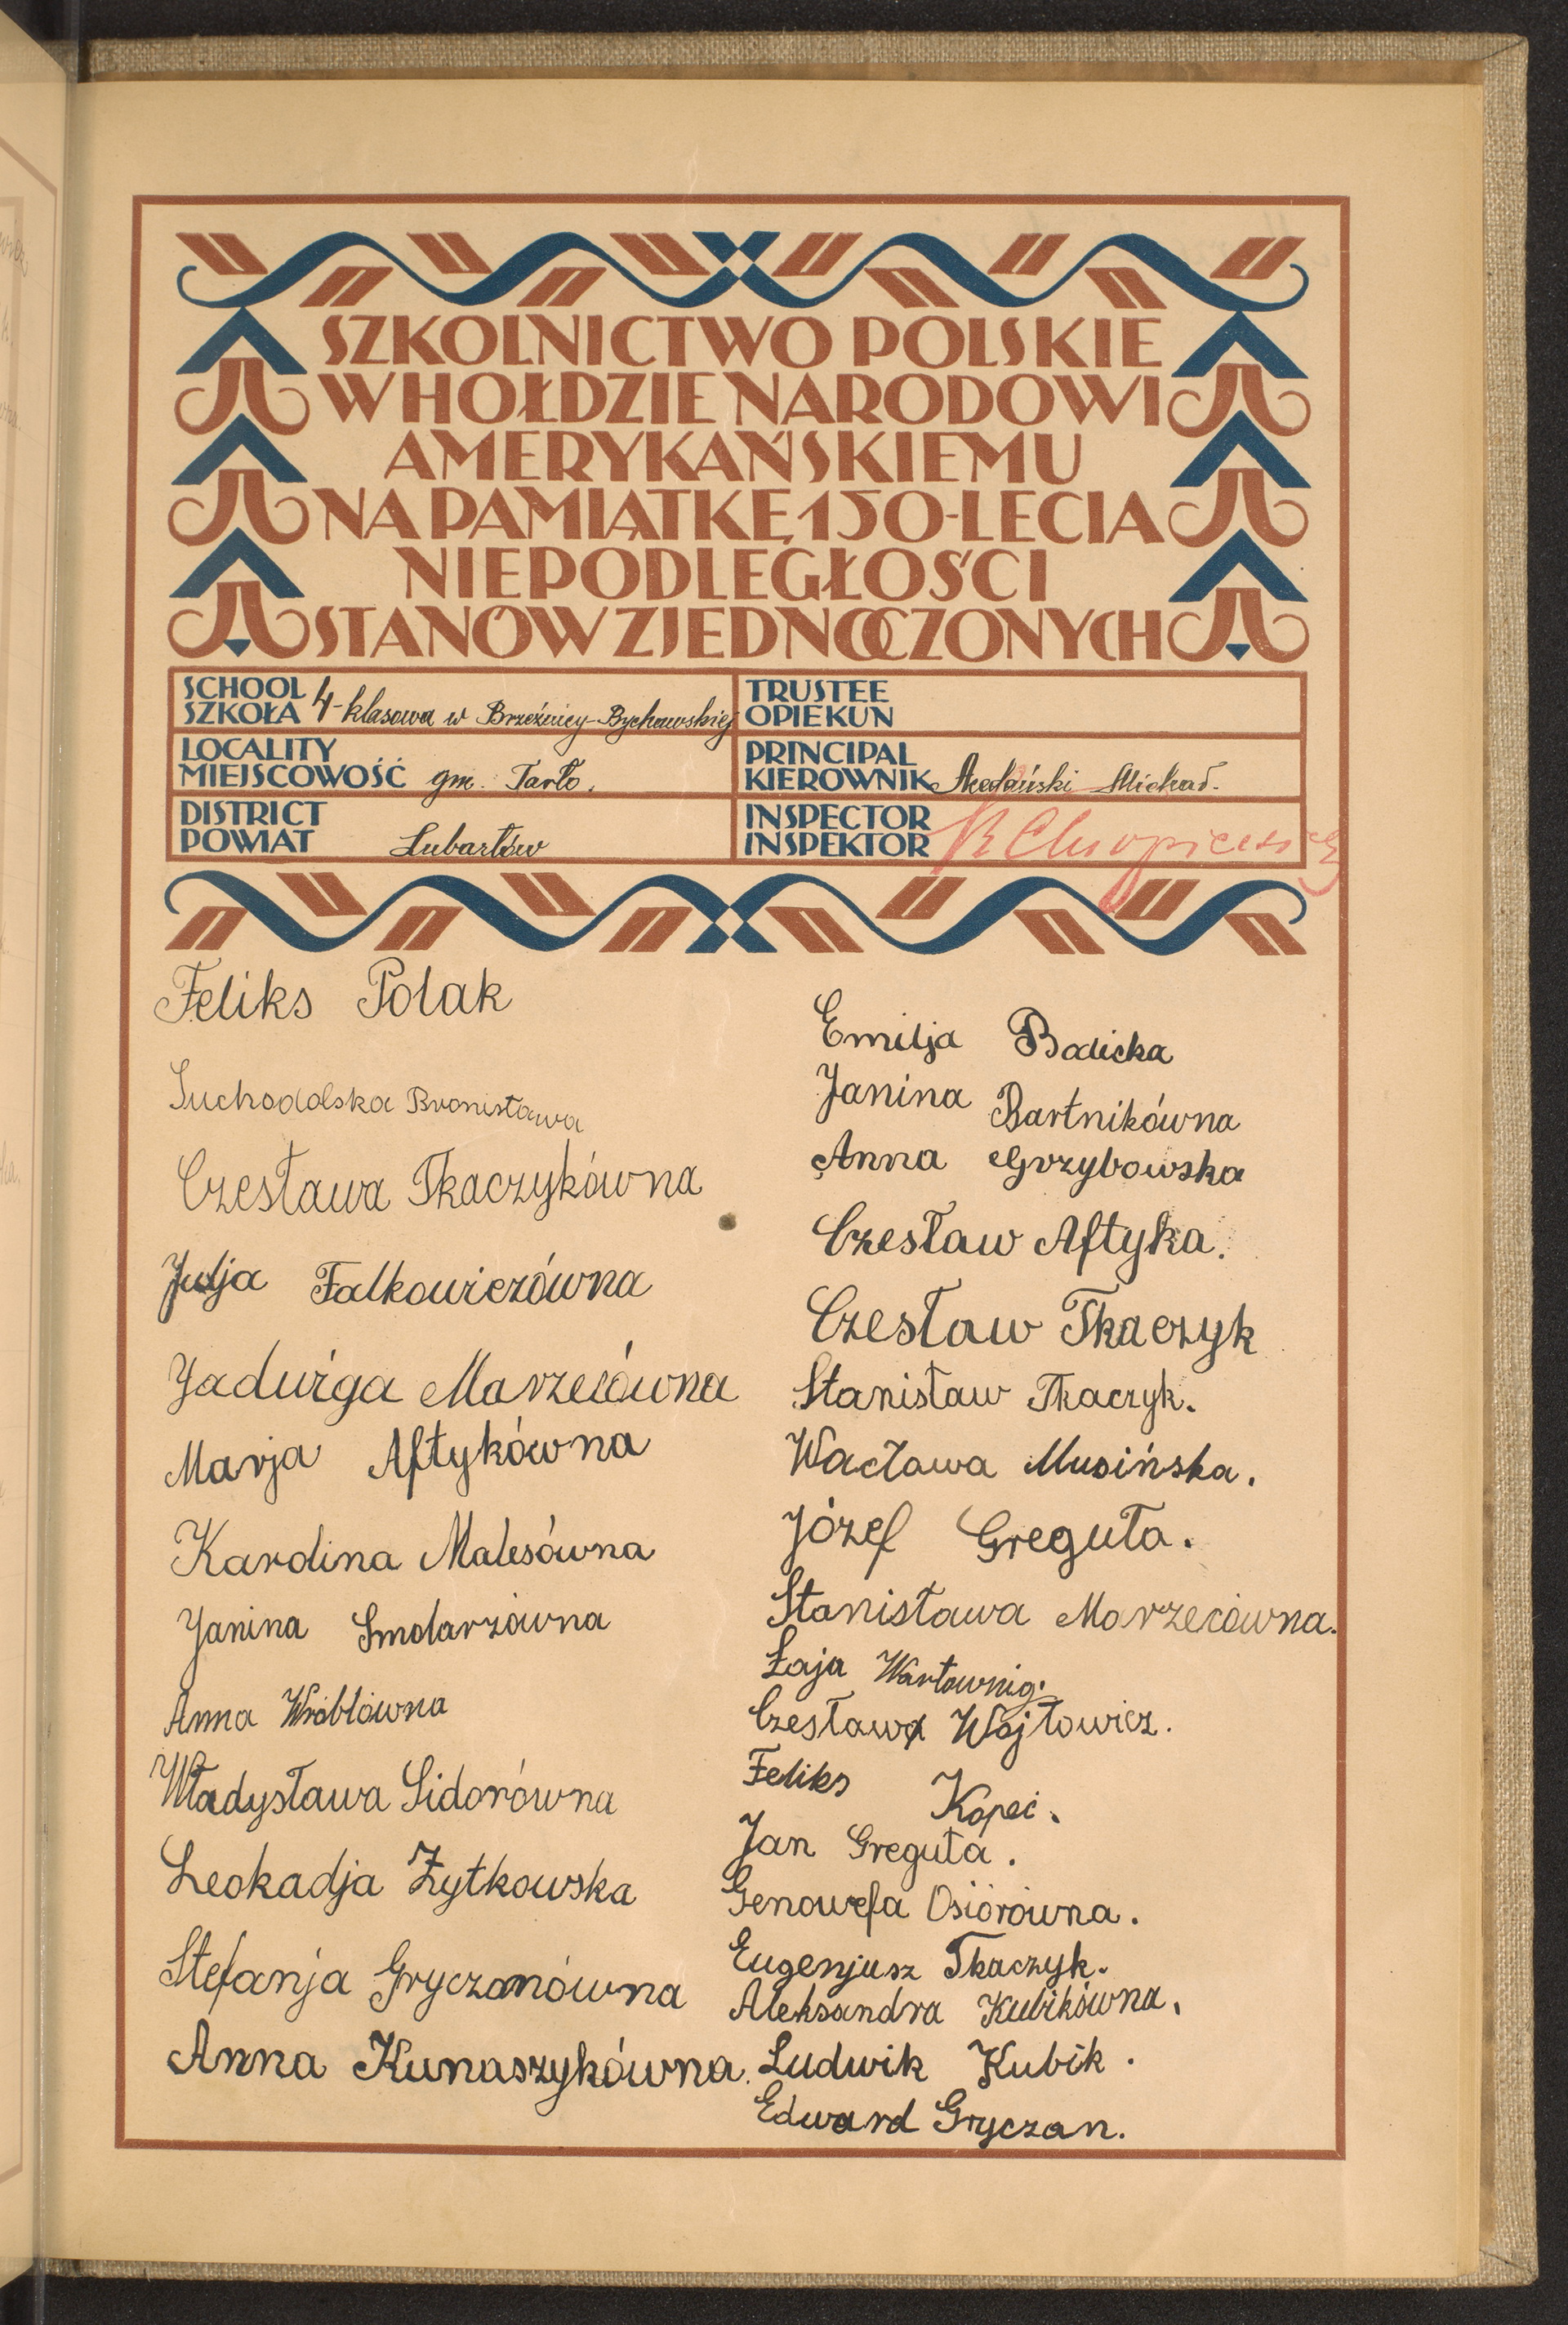 SZKOLNICTWO POLSKIE
W HOŁDZIE NARODOWI
AMERYKAŃSKIEMU
NA PAMIĄTKĘ 150-LECIA
NIEPODLEGŁOŚCI
STANÓW ZJEDNOCZONYCH
SCHOOL
SZKOŁA 4-klasowa w Brzeźnicy-Bychawskiej
LOCALITY
MIEJSCOWOŚĆ gm. Tarło.
DISTRICT
POWIAT Lubartów
TRUSTEE
OPIEKUN
PRINCIPAL
KIEROWNIK Michał.
INSPECTOR
INSPEKTOR
Feliks Polak
Suchodolska Bronisława
Czesława Tkaczykówna
Julja Falkowiczówna
Jadwiga Marzecówna
Marja Aftykówna
Karolina Malesówna
Janina Smolarzówna
Anna Wróblówna
Władysława Sidorówna
Leokadja Żytkowska
Stefanja Gryczanówna
Anna Kunaszykówna.
Emilja Badicka
Janina Bartnikówna
Anna Grzybowska
Czesław Aftyka.
Czesław Tkaczyk
Stanisław Tkaczyk.
Wacława Musińska.
Józef Greguła.
Stanisława Marzecówna.
Łaja
Czesława Wojtowicz.
Feliks Kopeć.
Jan Greguła.
Genowefa Osiorówna.
Eugenjusz Tkaczyk.
Aleksandra Kubikówna.
Ludwik Kubik.
Edward Gryczan.